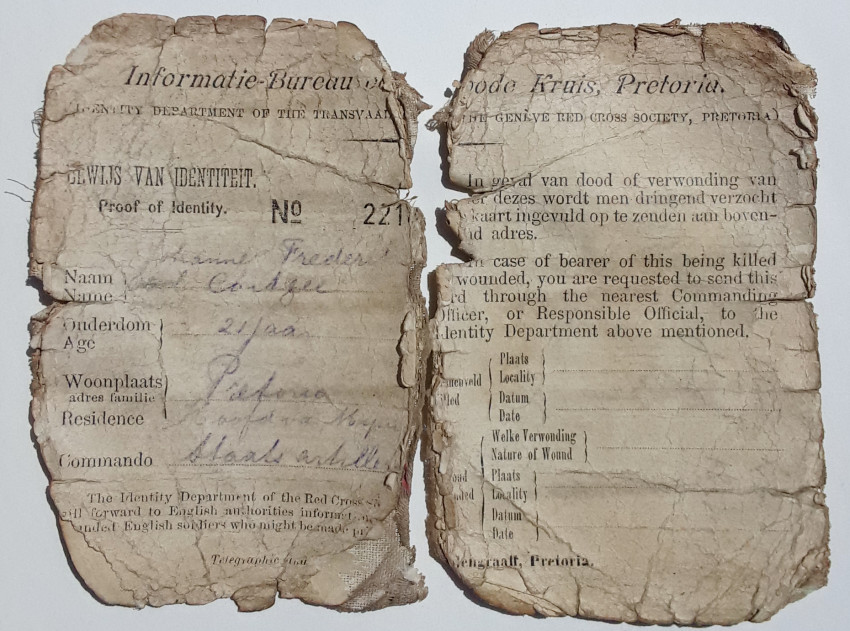 Informatie-Bureau
IDENTITY DEPARTMENT OF THE TRANSVAAL
BEWIJS VAN IDENTITEIT.
Proof of Identity.
No 221
Johannes Frederik
Naam
Name
Coetzee
Ouderdom
Age
21 jaar
Woonplaats
adres familie
Residence
Pretoria
Commando Staats artille
The Identity Department of the Red Cross
will forward to English authorities
English soldiers who might be made
Telegraphic
Roode Kruis, Pretoria.
DE GENÈVE RED CROSS SOCIETY, PRETORIA)
In geval van dood of verwonding van
dezes wordt men dringend verzocht
kaart ingevuld op te zenden aan boven-
adres.
In case of bearer of this being killed
wounded, you are requested to send this
through the nearest Commanding
Officer, or Responsible Official, to the
Identity Department above mentioned.
Plaats
Locality
Datum
Date
Welke Verwonding
Nature of Wound
Plaats
Locality
Datum
Date
Pretoria.